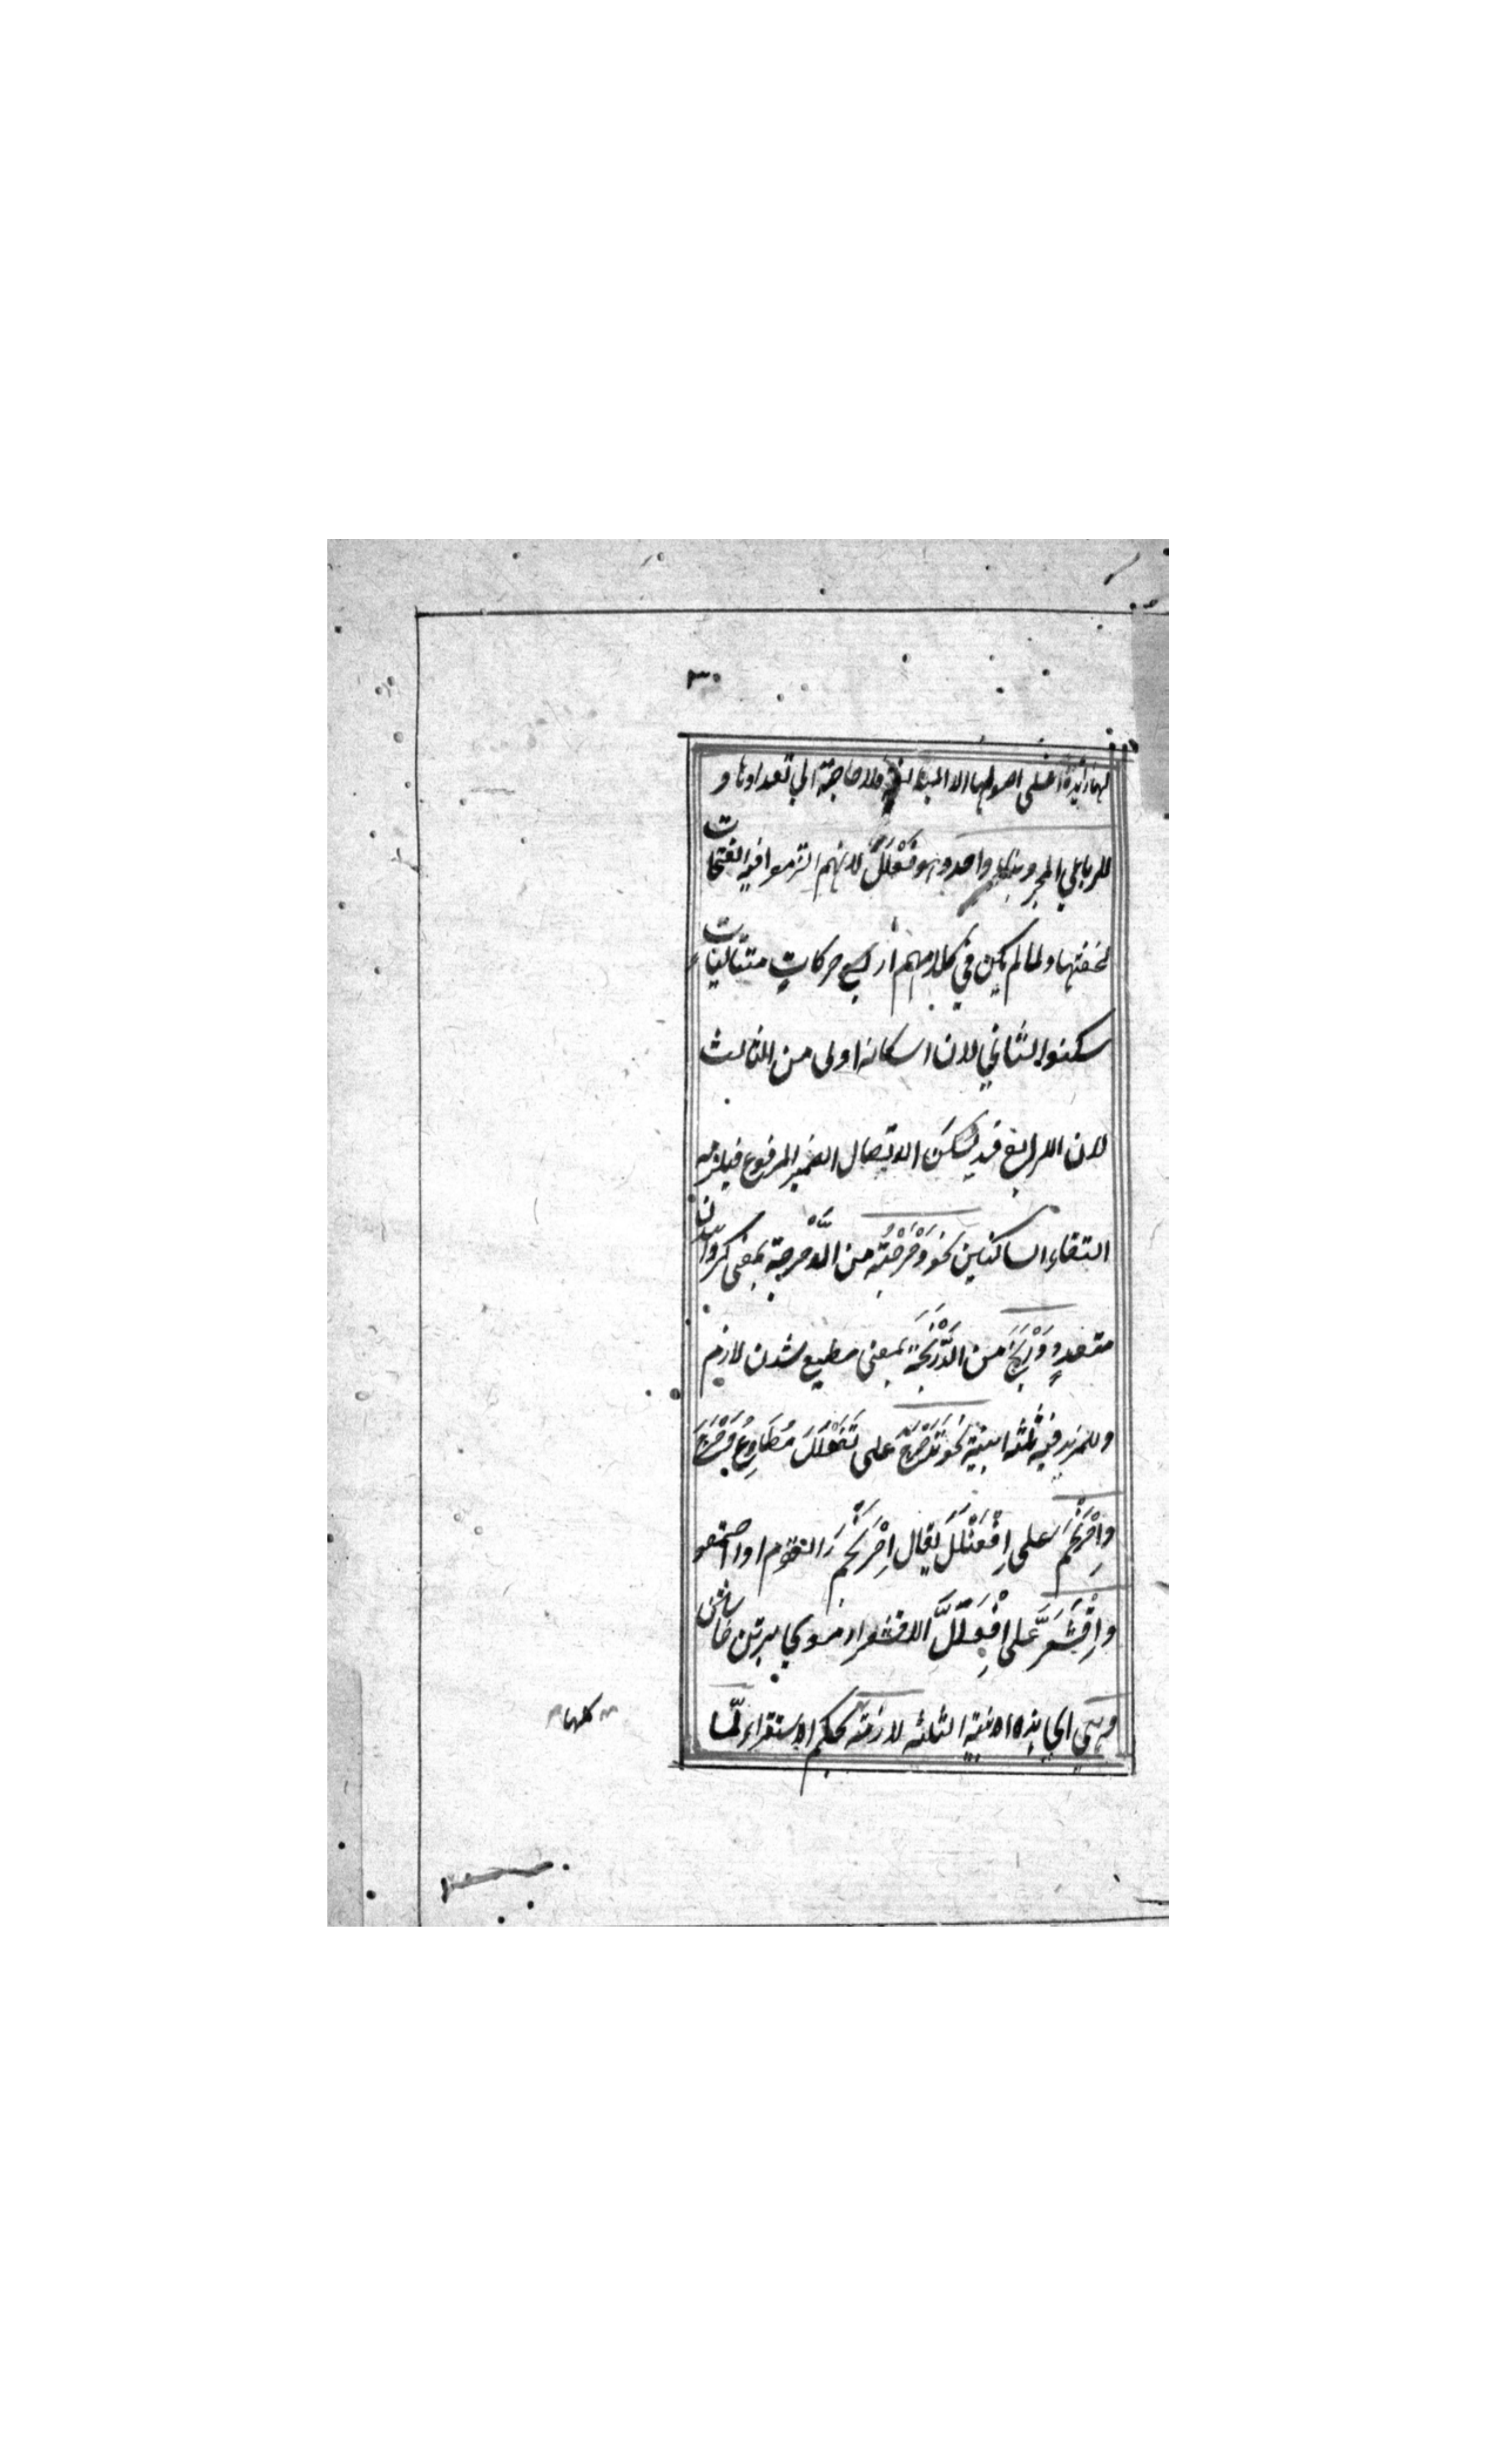 ٣٠
لها زائدة على اصولها الا المبالغة ولا حاجة الى تعدادها و
للرباعي المجرد بناء واحد وهو فَعْلَلَ لانهم التزموا فيه الفتحات
لخفتها ولما لم يكن في كلامهم اربع حركاتٍ متتاليات
سكنوا الثاني لان اسكانه اولى من الثالث
لان الرابع قد يسكن لاتصال الضمير المرفوع فيلزم
التقاء الساكنين نحو دَحْرَجْتُه من الدَّحْرجة بمعنى كردانيدن
متعدٍ ودَرْبَخَ من الدَّرْبَخَة بمعنى مطيع شدن لازم
وللمزيد فيه ثلثة ابنية نحو تَدَحْرَجَ على تَفَعْلَلَ مُطَاوِعُ دَحْرَجَ
وِاحْرَنْجَمَ على اِفْعَنْلَلَ يقال اِحْرَنْجَمَ القوم اذا اجتمعوا
وِاقْشَعَرَّ على اِفْعَلَلَّ الاقشعرار موي بر تن خاستن
وهي اي هذه الابنية الثلثة لازمة بحكم الاستقراء لمّا
كلها